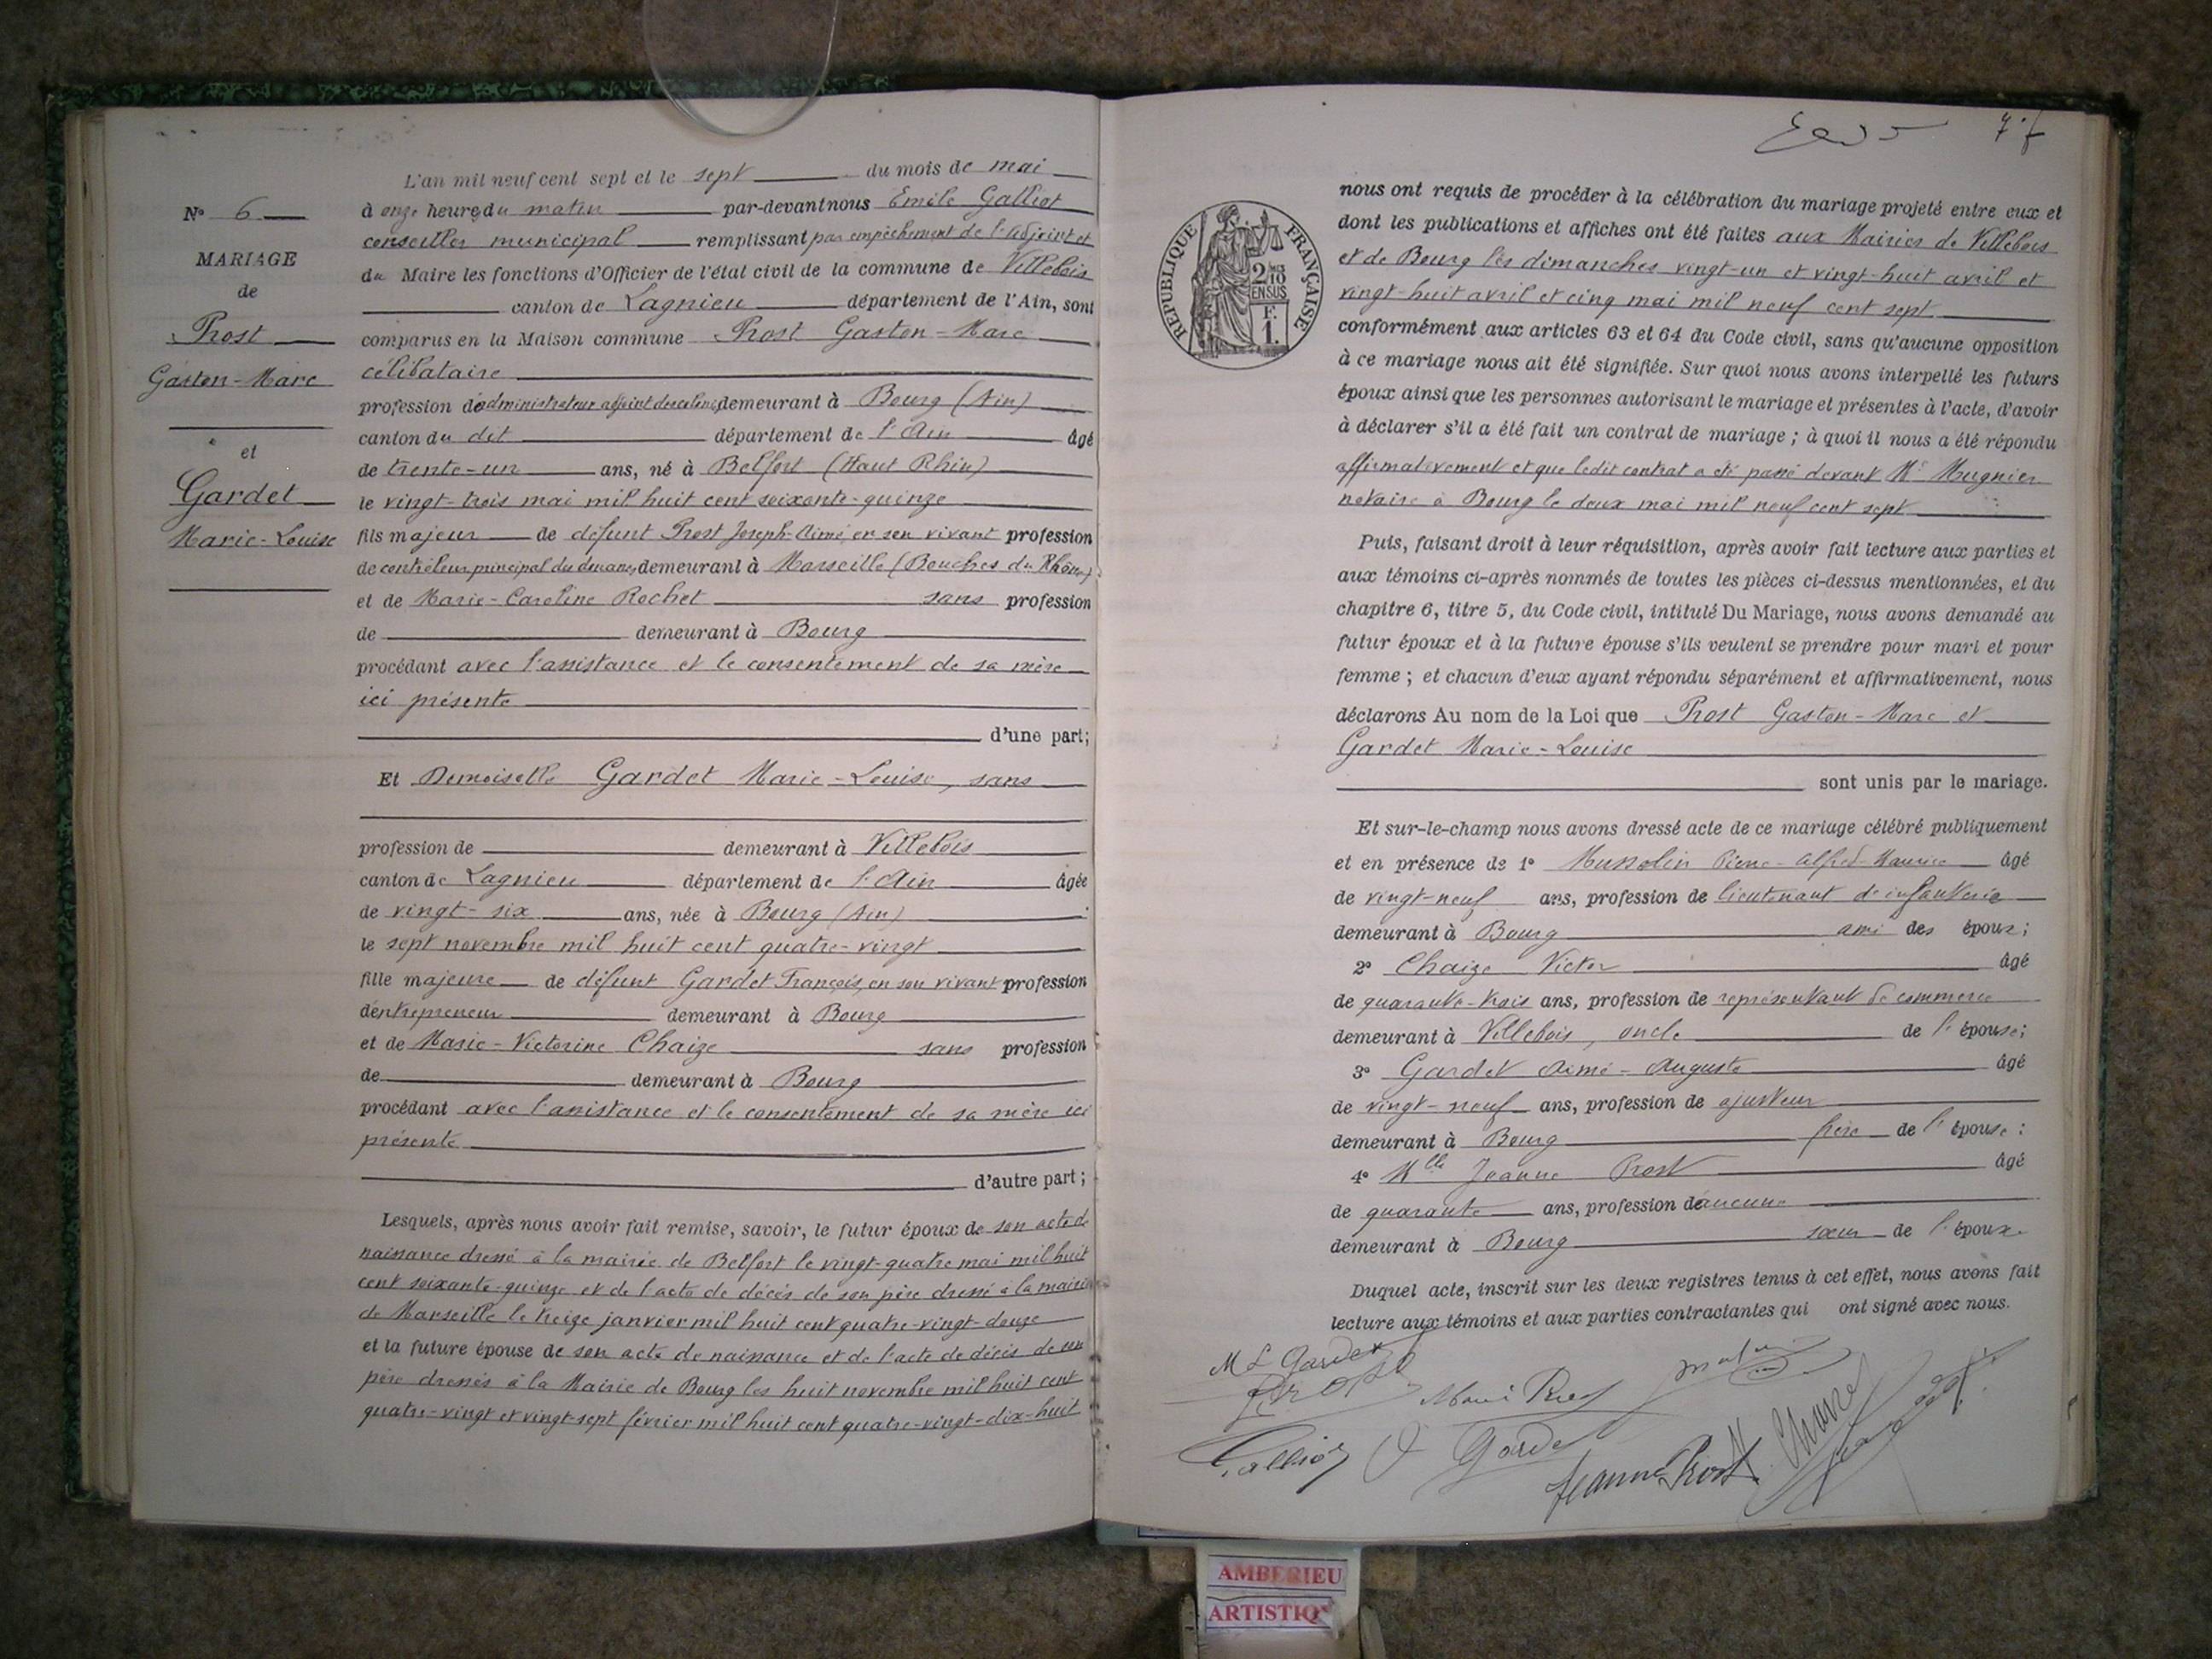 N° 6
MARIAGE
de
Prost
Gaston-Marc
et
Gardet
Marie-Louise
L'an mil neuf cent sept et le sept du mois de mai
à onze heures du matin par-devant nous Emile Galliot
conseiller municipal remplissant par empêchement de l'adjoint et
du Maire les fonctions d'Officier de l'état civil de la commune de Villebois
canton de Lagnieu département de l'Ain, sont
comparus en la Maison commune Prost Gaston-Marc
célibataire
profession d'administrateur adjoint des colonies demeurant à Bourg (Ain)
canton du dit département de l'Ain âgé
de trente-un ans, né à Belfort (Haut Rhin)
le vingt-trois mai mil huit cent soixante-quinze
fils majeur de défunt Prost Joseph-Aimé, en son vivant profession
de contrôleur principal des douanes demeurant à Marseille (Bouches du Rhône)
et de Marie-Caroline Rochet sans profession
de demeurant à Bourg
procédant avec l'assistance et le consentement de sa mère
ici présente
d'une part;
Et Demoiselle Gardet Marie-Louise, sans
profession de demeurant à Villebois
canton de Lagnieu département de l'Ain âgée
de vingt-six ans, née à Bourg (Ain)
le sept novembre mil huit cent quatre-vingt
fille majeure de défunt Gardet François, en son vivant profession
d'entrepreneur demeurant à Bourg
et de Marie-Victorine Chaize sans profession
de demeurant à Bourg
procédant avec l'assistance et le consentement de sa mère ici
présente
d'autre part;
Lesquels, après nous avoir fait remise, savoir, le futur époux de son acte de
naissance dressé à la mairie de Belfort le vingt-quatre mai mil huit
cent soixante-quinze et de l'acte de décès de son père dressé à la mairie
de Marseille le treize janvier mil huit cent quatre-vingt-douze
et la future épouse de son acte de naissance et de l'acte de décès de son
père dressés à la Mairie de Bourg les huit novembre mil huit cent
quatre-vingt et vingt-sept février mil huit cent quatre-vingt-dix-huit
RÉPUBLIQUE FRANÇAISE
2/10
EN SUS
F.
1.
nous ont requis de procéder à la célébration du mariage projeté entre eux et
dont les publications et affiches ont été faites aux Mairies de Villebois
et de Bourg les dimanches vingt-un et vingt-huit avril et
vingt-huit avril et cinq mai mil neuf cent sept
conformément aux articles 63 et 64 du Code civil, sans qu'aucune opposition
à ce mariage nous ait été signifiée. Sur quoi nous avons interpellé les futurs
époux ainsi que les personnes autorisant le mariage et présentes à l'acte, d'avoir
à déclarer s'il a été fait un contrat de mariage ; à quoi il nous a été répondu
affirmativement et que ledit contrat a été passé devant Me Mugnier
notaire à Bourg le deux mai mil neuf cent sept
Puis, faisant droit à leur réquisition, après avoir fait lecture aux parties et
aux témoins ci-après nommés de toutes les pièces ci-dessus mentionnées, et du
chapitre 6, titre 5, du Code civil, intitulé Du Mariage, nous avons demandé au
futur époux et à la future épouse s'ils veulent se prendre pour mari et pour
femme ; et chacun d'eux ayant répondu séparément et affirmativement, nous
déclarons Au nom de la Loi que Prost Gaston-Marc et
Gardet Marie-Louise
sont unis par le mariage.
Et sur-le-champ nous avons dressé acte de ce mariage célébré publiquement
et en présence de 1° Mussolin Pierre-Alfred-Maurice âgé
de vingt-neuf ans, profession de lieutenant d'infanterie
demeurant à Bourg ami des époux;
2° Chaize Victor âgé
de quarante-trois ans, profession de représentant de commerce
demeurant à Villebois, oncle de l'épouse;
3° Gardet Aimé-Auguste âgé
de vingt-neuf ans, profession de ajusteur
demeurant à Bourg frère de l'épouse;
4° Mlle Jeanne Prost âgé
de quarante ans, profession d'aucune
demeurant à Bourg sœur de l'époux.
Duquel acte, inscrit sur les deux registres tenus à cet effet, nous avons fait
lecture aux témoins et aux parties contractantes qui ont signé avec nous.
M L Gardet
Prost
Galliot
Gardet
Jeanne Prost
Chaize
AMBERIEU
ARTISTIQ